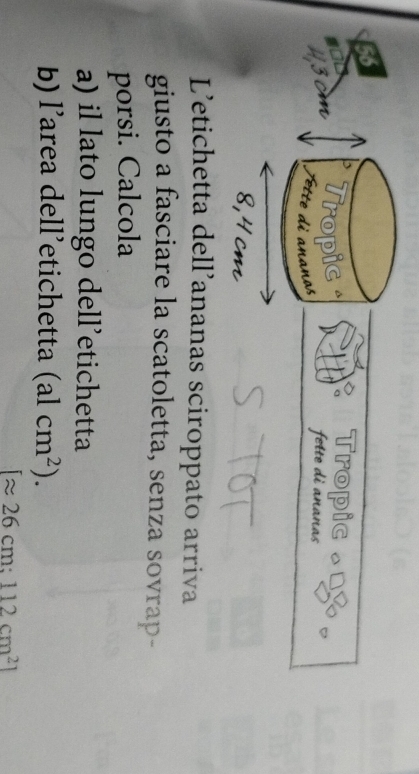 56
4,3 cm
Tropic
fette di ananas
Tropic
fette di ananas
8,4 cm
S TOT
L'etichetta dell'ananas sciroppato arriva
giusto a fasciare la scatoletta, senza sovrap-
porsi. Calcola
a) il lato lungo dell'etichetta
b) l'area dell'etichetta (al cm²).
[≈ 26 cm; 112 cm²]